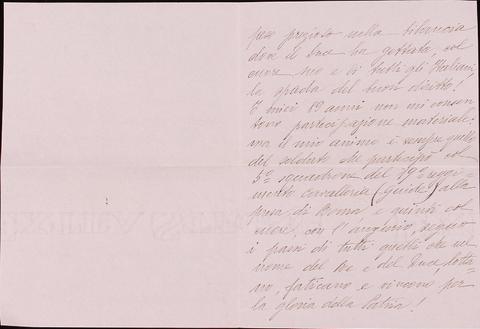 peso prezioso nella bilancia
dove il Duce ha gettata, col
cuore suo e di tutti gli Italiani,
la spada del buon diritto!
I miei 89 anni non mi consen
tono partecipazione materiale:
ma il mio animo è sempre quello
del soldato che partecipò col
5º squadrone del 19º reggi-
mento Cavalleria (Guide) alla
presa di Roma e quindi col
cuore, con l'augurio, seguo
i passi di tutti quelli che nel
nome del Re e del Duce, lotta-
no, faticano e vincono per
la gloria della Patria!